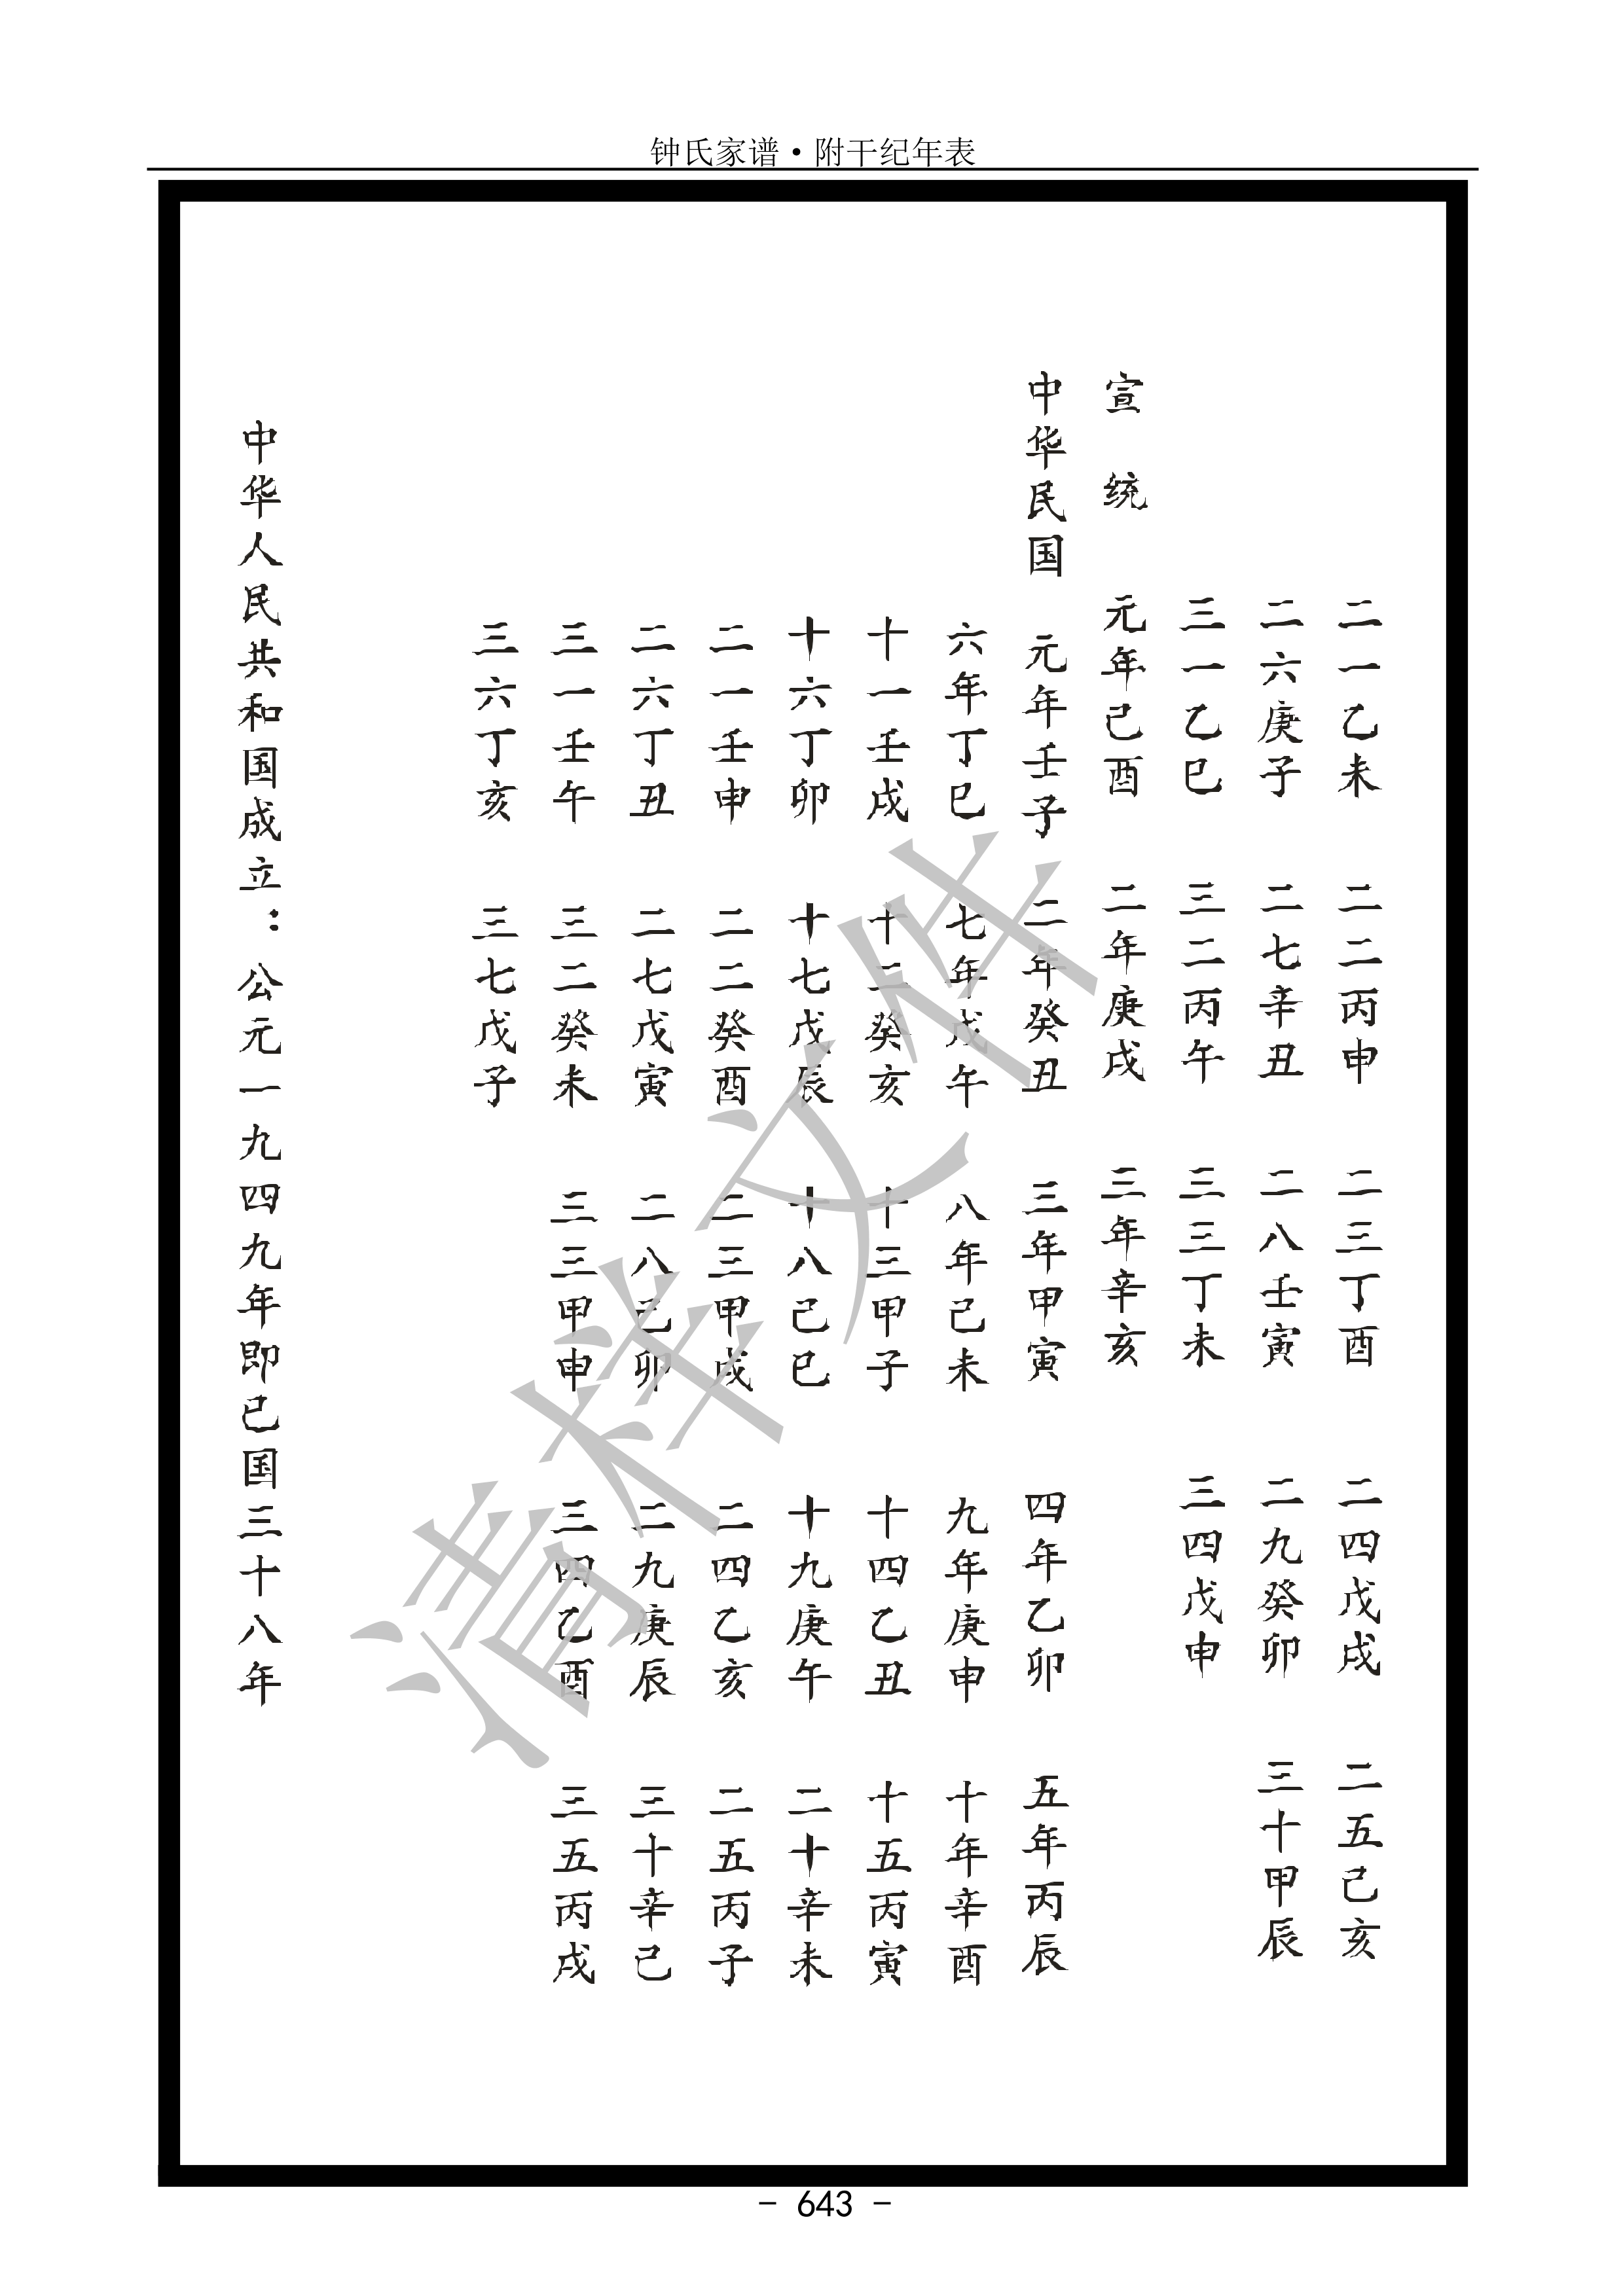 钟氏家谱·附干纪年表
二一乙未 二二丙申 二三丁酉 二四戊戌 二五己亥
二六庚子 二七辛丑 二八壬寅 二九癸卯 三十甲辰
三一乙巳 三二丙午 三三丁未 三四戊申
宣统 元年己酉 二年庚戌 三年辛亥
中华民国 元年壬子 二年癸丑 三年甲寅 四年乙卯 五年丙辰
六年丁巳 七年戊午 八年己未 九年庚申 十年辛酉
十一壬戌 十二癸亥 十三甲子 十四乙丑 十五丙寅
十六丁卯 十七戊辰 十八己巳 十九庚午 二十辛未
二一壬申 二二癸酉 二三甲戌 二四乙亥 二五丙子
二六丁丑 二七戊寅 二八己卯 二九庚辰 三十辛己
三一壬午 三二癸未 三三甲申 三四乙酉 三五丙戌
三六丁亥 三七戊子
中华人民共和国成立：公元一九四九年即已国三十八年
清样文件
- 643 -